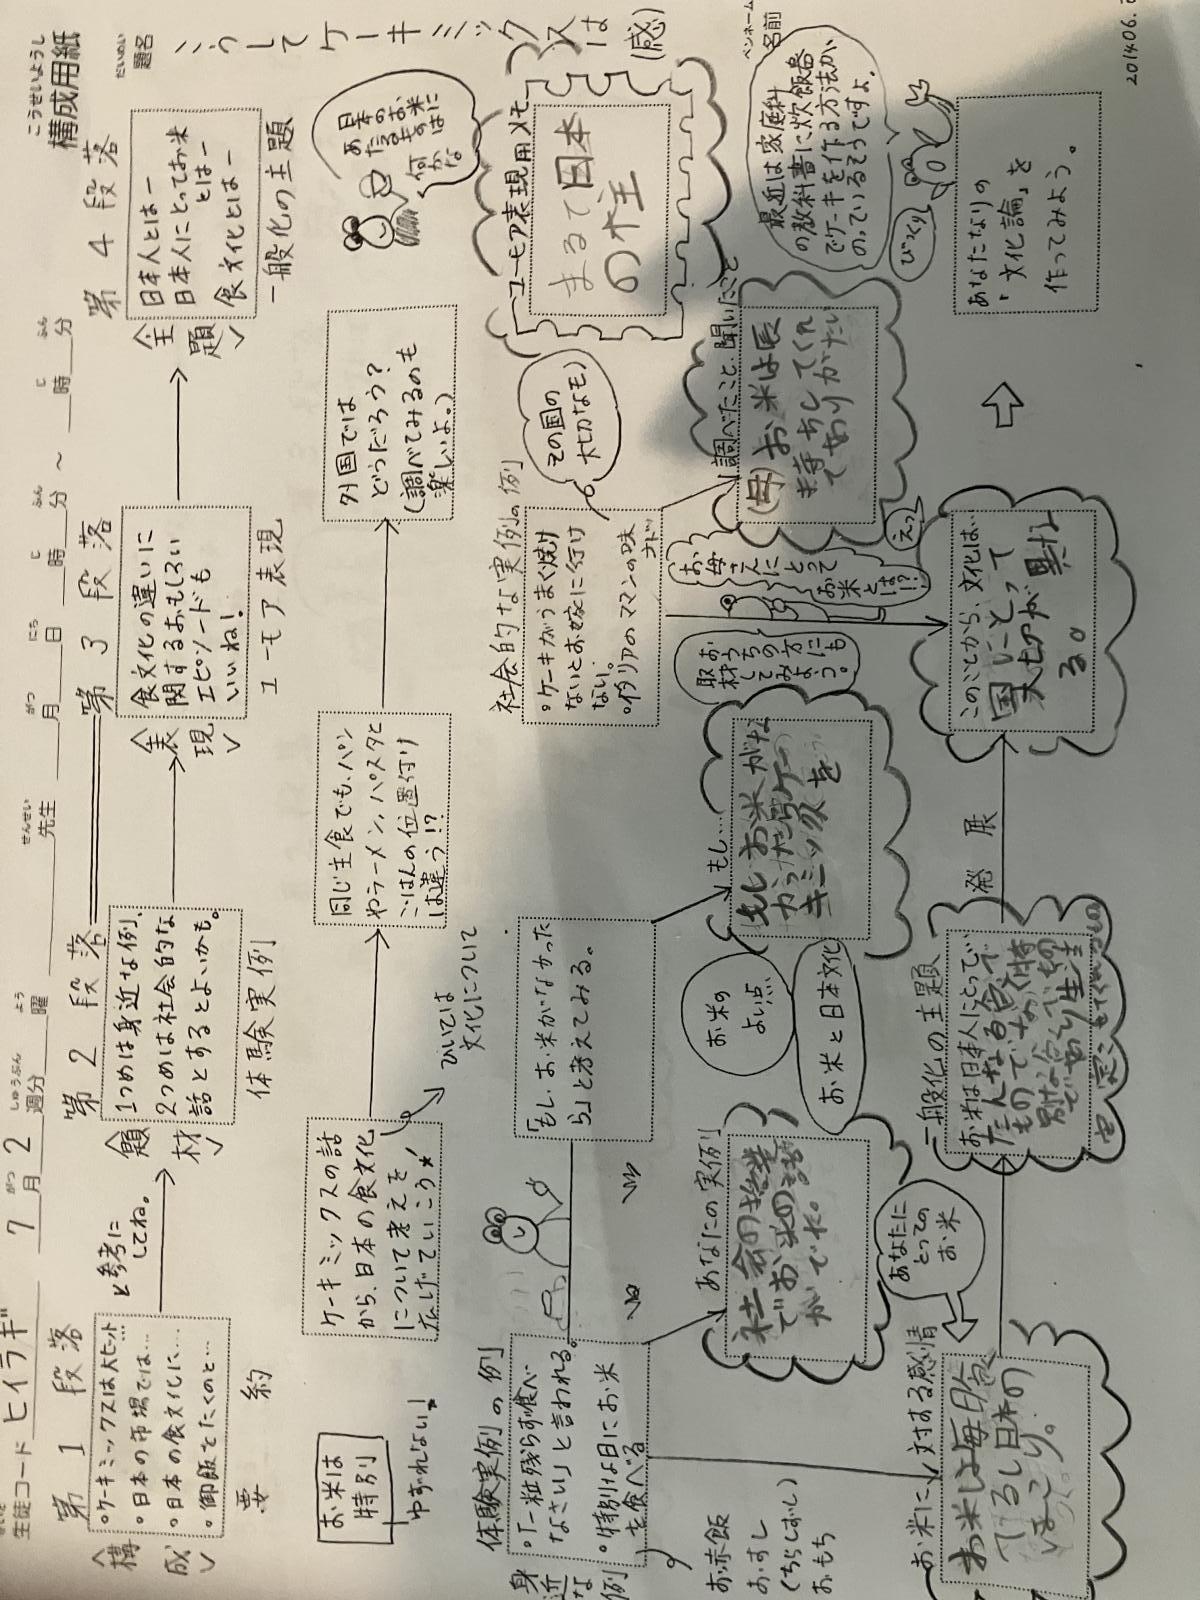 こうせいようし
構成用紙
だいめい
題名
こうしてケーキミックスは(感)
ペンホーム
名前
生徒コード ヒイラギ 7月2週分 曜 先生 月 日 時 分 ~ 時 分
がつ しゅうぶん よう せんせい がつ にち じ ふん じ ふん
第1段落
<構成>
・ケーキミックスは大ヒット…
・日本の市場では…
・日本の食文化に…
・御飯をたくのと…
要約
と参考に
してね。
第2段落
<題材>
1つめは身近な例、
2つめは社会的な
話とするとよいかも。
体験実例
第3段落
<表現>
食文化の違いに
関するおもしろい
エピソードも
いいね!
ユーモア表現
第4段落
<主題>
日本人とはー
日本人にとってお米
とはー
食文化とはー
一般化の主題
お米は
特別
ゆずれない!
ケーキミックスの話
から、日本の食文化
について考えを
広げていこう
ひいては
文化について
同じ主食でも、パン
やラーメン、パスタと
ごはんの位置付け
は違う!?
外国では
どうだろう?
(調べてみるのも
楽しいよ。)
体験実例の例
身近な例
・「一粒残らず食べ
なさい」と言われる。
・特別な日にお米
を食べる
お赤飯
おすし
(ちらしずし)
おもち
「もし、お米がなかった
ら」と考えてみる。
社会的な実例の例
・ケーキがうまく焼け
ないとお嫁に行け
ない。
・イタリアのママンの味
その国の
大切なもの
ユーモア表現用メモ
まるで日本
の柱
あなたの実例
お米の
よい点
お米と日本文化
もし…
もしお米がな
かったらケー
キミックスを
取材してみよう。
お母さんにとって
お米とは!?
えっ
調べたこと、聞いたこと
(母)お米は長
持ちしてくれ
てありがたい
最近は家庭科
の教科書に炊飯器
でケーキを作る方法が、
のっているそうですよ。
びっくり
お米に対する感情
お米は毎日食
べてるし日本の
ほこり。
あなたに
とっての
お米
一般化の主題
お米は日本人にとって、
たんなる食べ
ものでなく特
別な
発展
このことから、文化は…
国によって
大切さが異な
る。
あなたなりの
「文化論」を
作ってみよう。